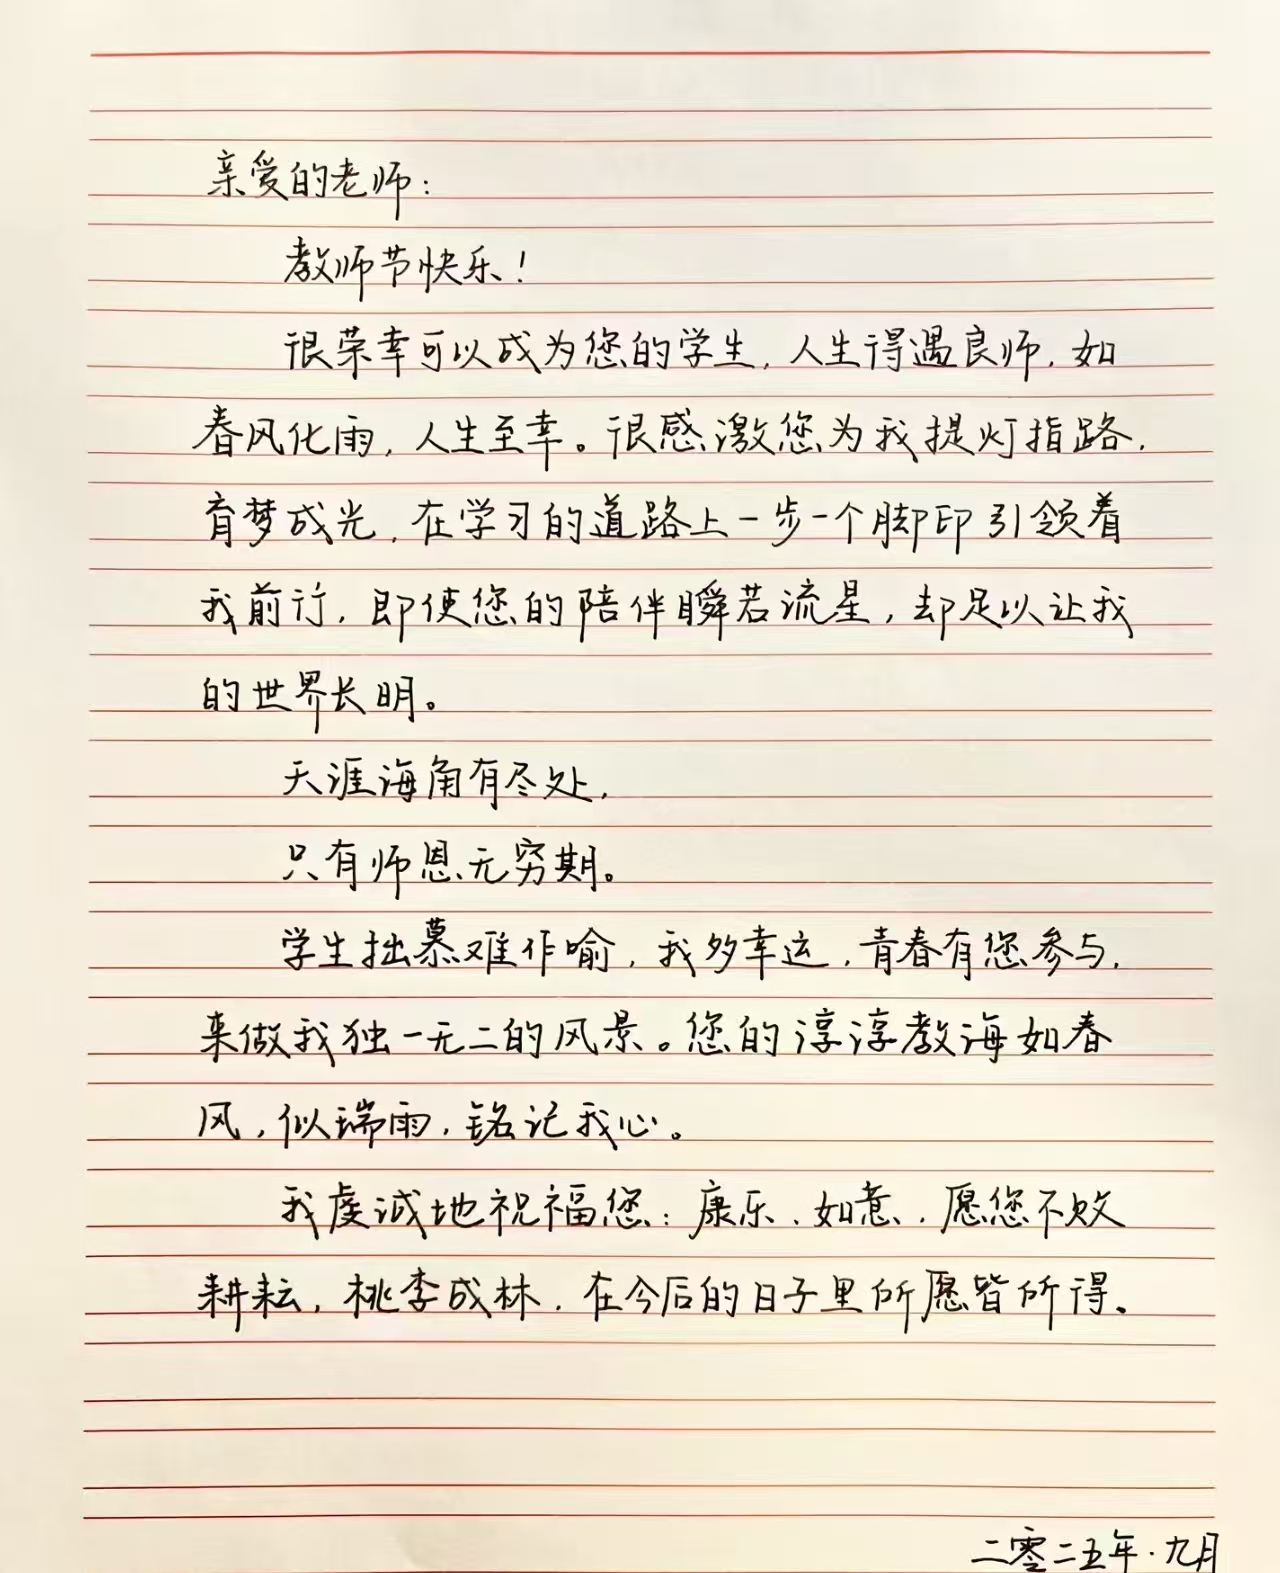 亲爱的老师:
教师节快乐!
很荣幸可以成为您的学生,人生得遇良师,如
春风化雨,人生至幸。很感激您为我提灯指路,
育梦成光,在学习的道路上一步一个脚印引领着
我前行,即使您的陪伴瞬若流星,却足以让我
的世界长明。
天涯海角有尽处,
只有师恩无穷期。
学生拙慕难作喻,我多幸运,青春有您参与,
来做我独一无二的风景。您的淳淳教海如春
风,似瑞雨,铭记我心。
我虔诚地祝福您:康乐、如意,愿您不败
耕耘,桃李成林,在今后的日子里所愿皆所得。
二零二五年·九月